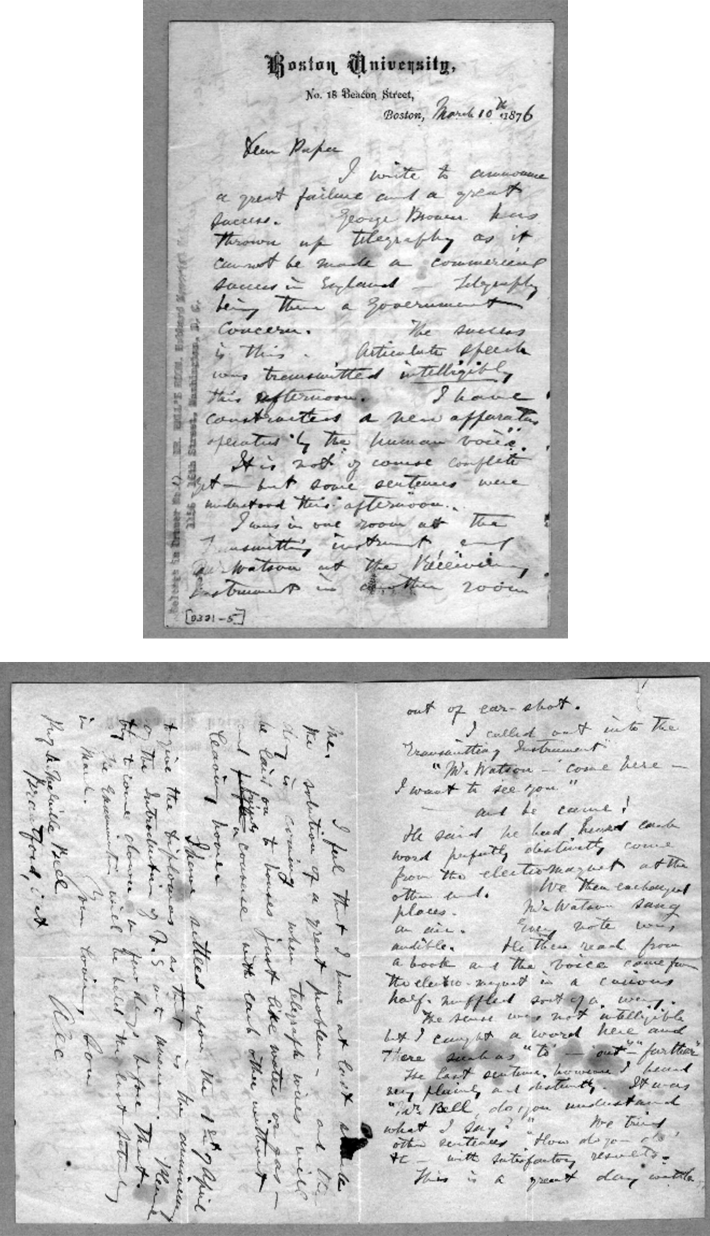 Boston University,
No. 18 Beacon Street,
Boston, March 10th 1876
Dear Papa
I write to announce
a great failure and a great
success. George Brown has
thrown up telegraphy as it
cannot be made a commercial
success in England — Telegraphy
being there a Government
Concern. The success
is this. Articulate speech
was transmitted intelligibly
this afternoon. I have
constructed a new apparatus
operated by the human voice.
It is not of course complete
yet — but some sentences were
understood this afternoon.
I was in one room at the
Transmitting instrument and
Mr Watson at the Receiving
Instrument in another room
[0321-5]
1116 18th Street, Washington, D. C.
out of ear-shot.
I called out into the
Transmitting Instrument
"Mr Watson — come here —
I want to see you"
— and he came!
He said he had heard each
word perfectly distinctly come
from the electro-magnet at the
other end. We then exchanged
places. Mr Watson sang
an air. Every note was
audible. He then read from
a book and the voice came from
the electro-magnet in a curious
half-muffled sort of a way.
The sense was not intelligible
but I caught a word here and
there such as "to" — "out" — "further"
The last sentence, however I heard
very plainly and distinctly. It was
"Mr Bell, do you understand
what I say?" We tried
other sentences "How do you do"
&c — with satisfactory results.
This is a great day with
me. I feel that I have at last
the solution of a great problem — and the
day is coming when telegraph wires will
be laid on to houses just like water or gas —
and friends converse with each other without
leaving home.
I have settled upon the April
to give the diplomas as that is the anniversary
of the Introduction of V. S. into America. Please
try to come down a few days before that.
The Examination will be held the last Saturday
in March.
Your loving Son
Alec
Prof A. Melville Bell
Brantford,